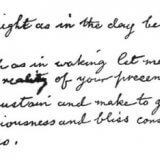 ight as in the day be
h as in waking let me
reality of your presen
sustain and make to g
iousness and bliss cons
s.